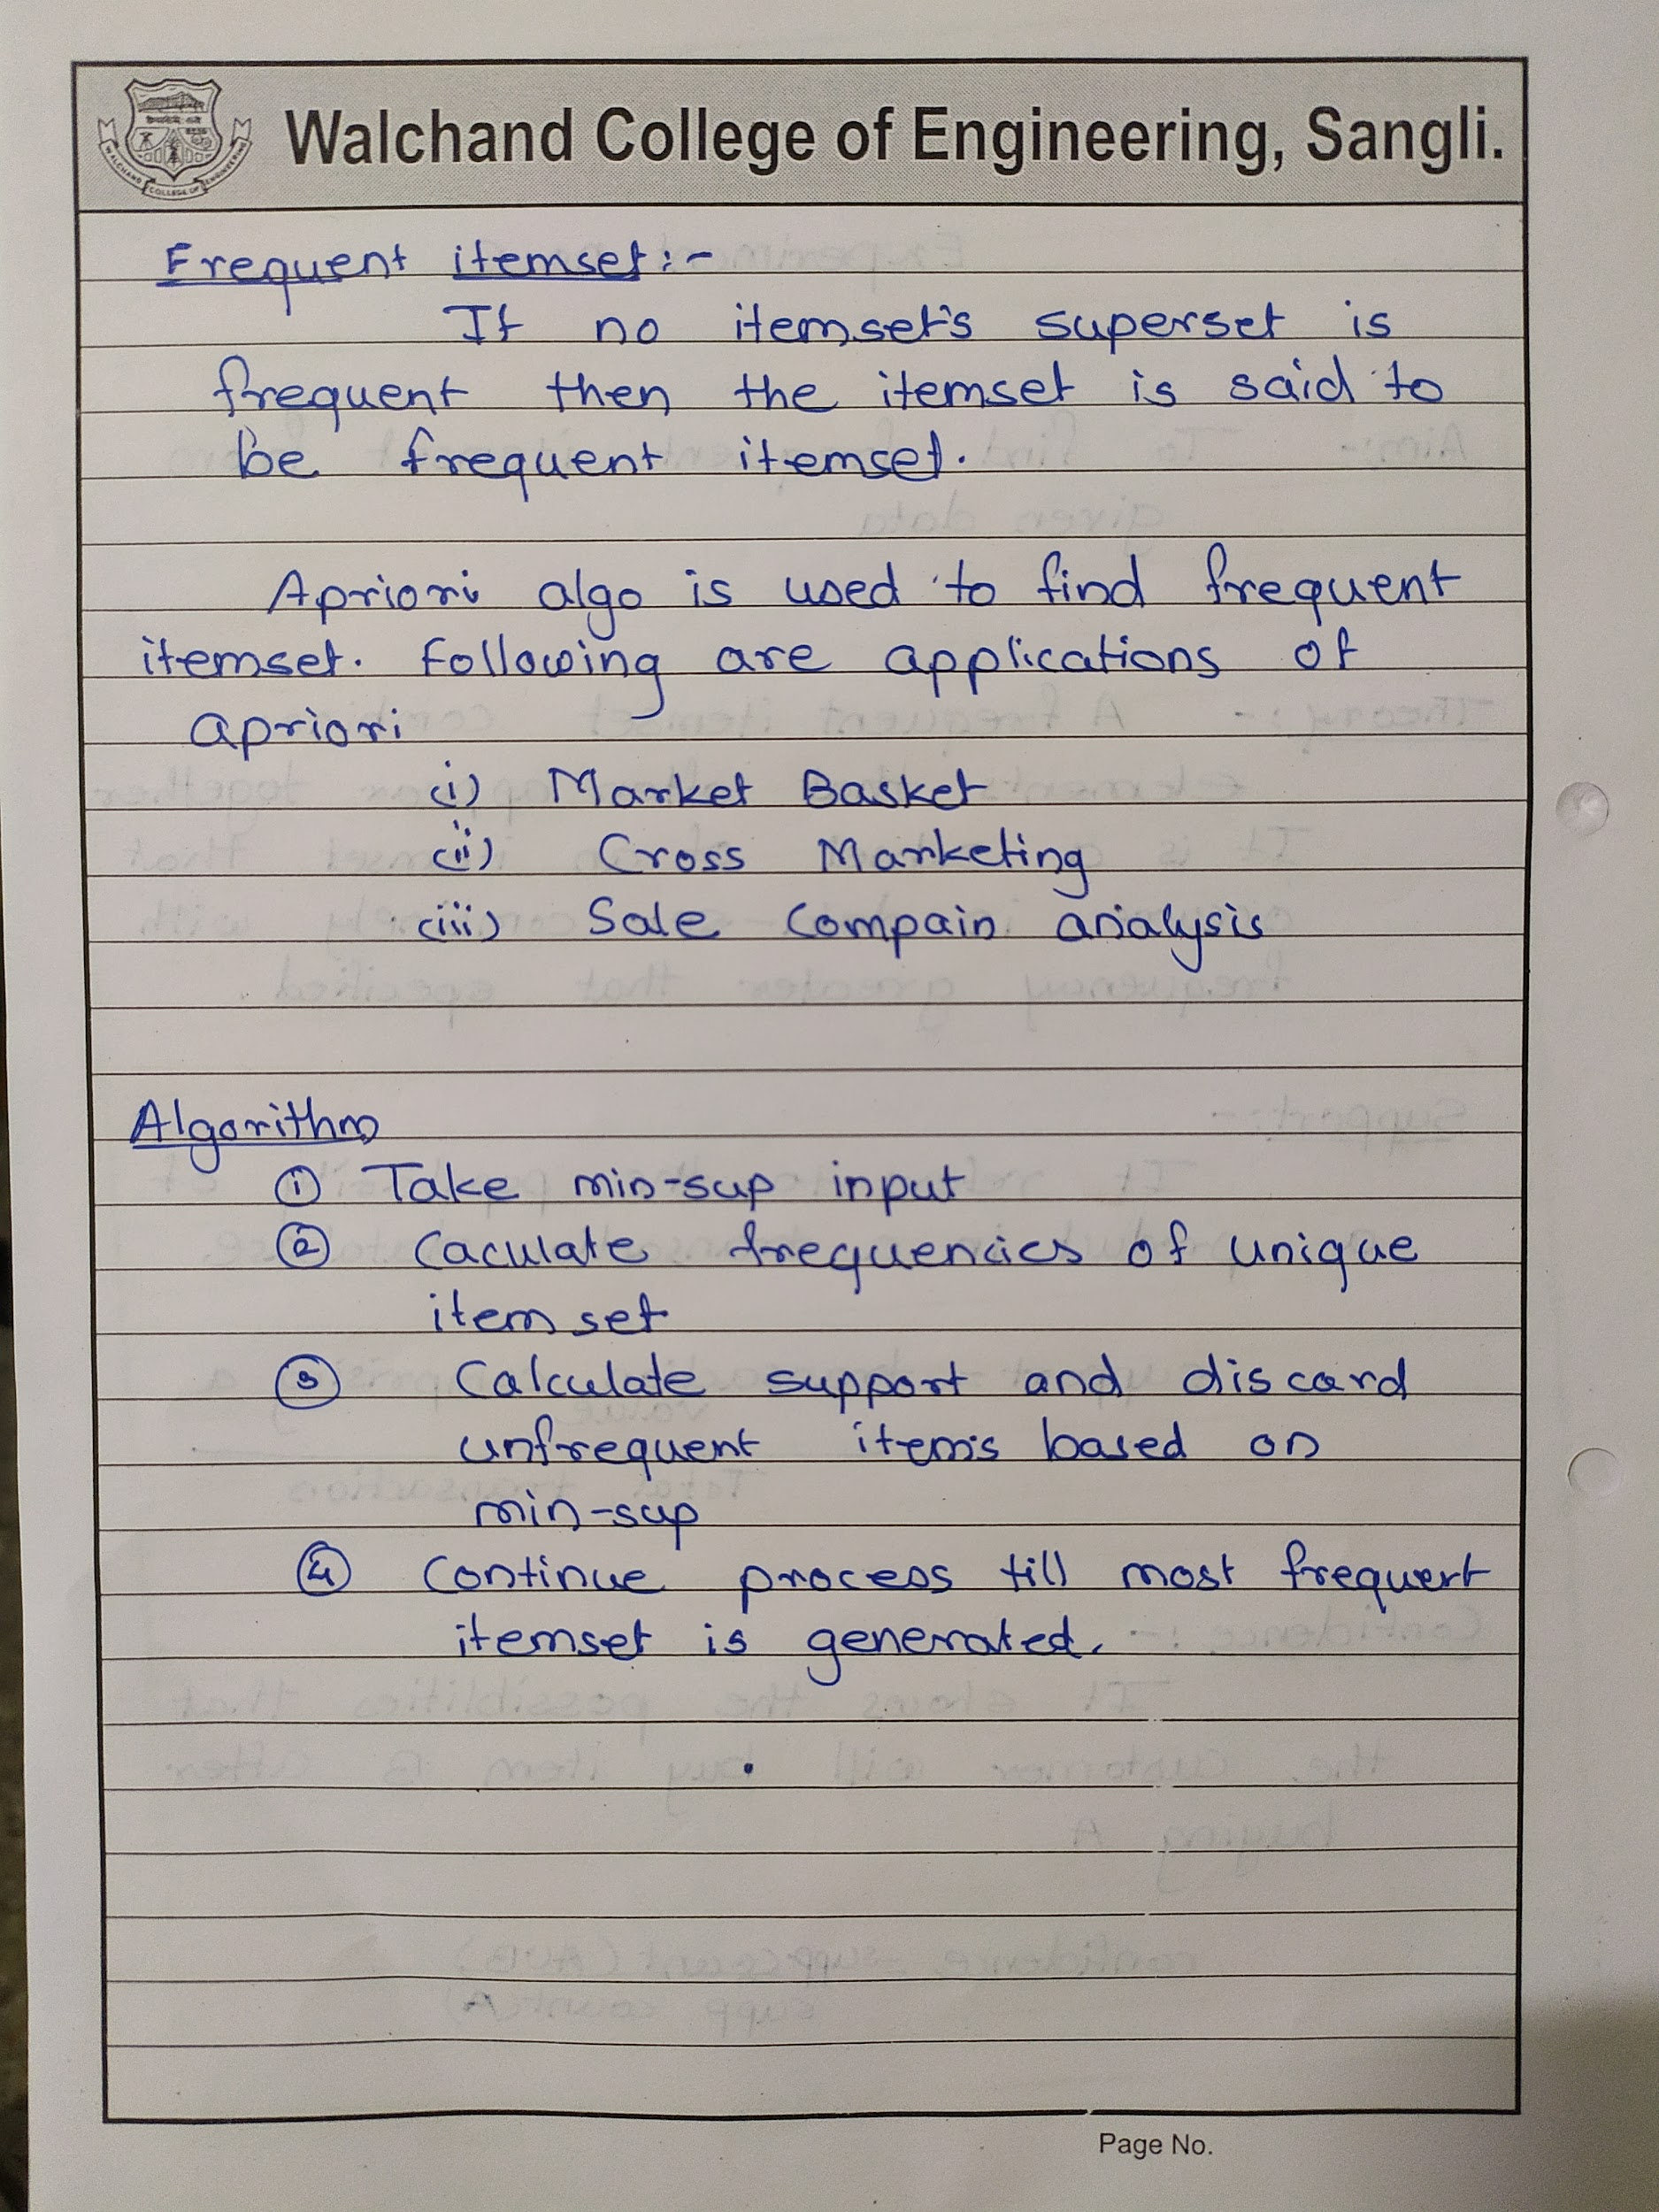 WALCHAND COLLEGE OF ENGINEERING
Walchand College of Engineering, Sangli.
Frequent itemset:-
If no itemset's superset is
frequent then the itemset is said to
be frequent itemset.
Apriori algo is used to find frequent
itemset. Following are applications of
apriori
(i) Market Basket
(ii) Cross Marketing
(iii) Sale Compain analysis
Algorithm
① Take min-sup input
② Caculate frequencies of unique
item set
③ Calculate support and discard
unfrequent items based on
min-sup
④ Continue process till most frequent
itemset is generated.
Page No.